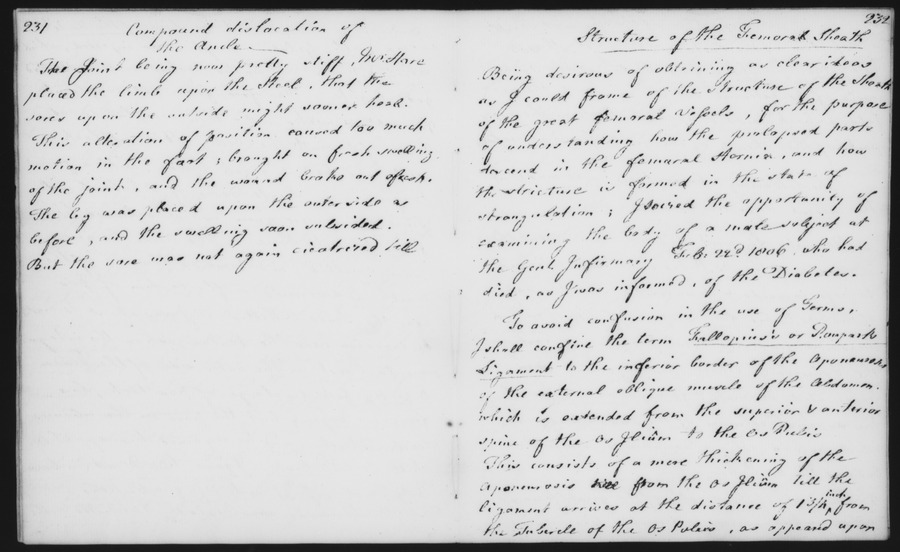 231
Compound dislocation of
the Ancle
The Joint being now pretty stiff, Mr Hare
placed the limb upon the Heel, that the
sores upon the outside might sooner heal.
This alteration of position caused too much
motion in the part; brought on fresh swelling
of the joint, and the wound broke out afresh.
The leg was placed upon the outer side as
before, and the swelling soon subsided.
But the sore was not again cicatrized till
232
Structure of the Femoral Sheath
Being desirous of obtaining as clear ideas
as I could frame of the Structure of the Sheath
of the great femoral Vessels, for the purpose
of understanding how the prolapsed parts
descend in the femoral Hernia, and how
the stricture is formed in the state of
strangulation; I seized the opportunity of
examining the body of a male subject at
the Genl. Infirmary Feb. 22d. 1806 who had
died, as I was informed, of the Diabetes.
To avoid confusion in the use of Terms,
I shall confine the term Fallopius's or Poupart's
Ligament to the inferior border of the Aponeurosis
of the external oblique muscle of the Abdomen.
which is extended from the superior & anterior
spine of the Os Ilium to the Os Pubis
This consists of a mere thickening of the
Aponeurosis from the Os Ilium till the
ligament arrives at the distance of 1 3/4 inch, from
the Tubercle of the Os Pubis, as appeared upon